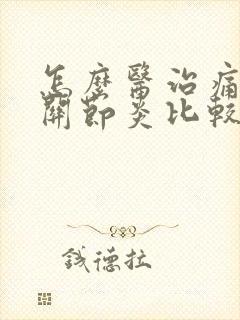 怎麼醫治痛
關節炎比較
錢德拉